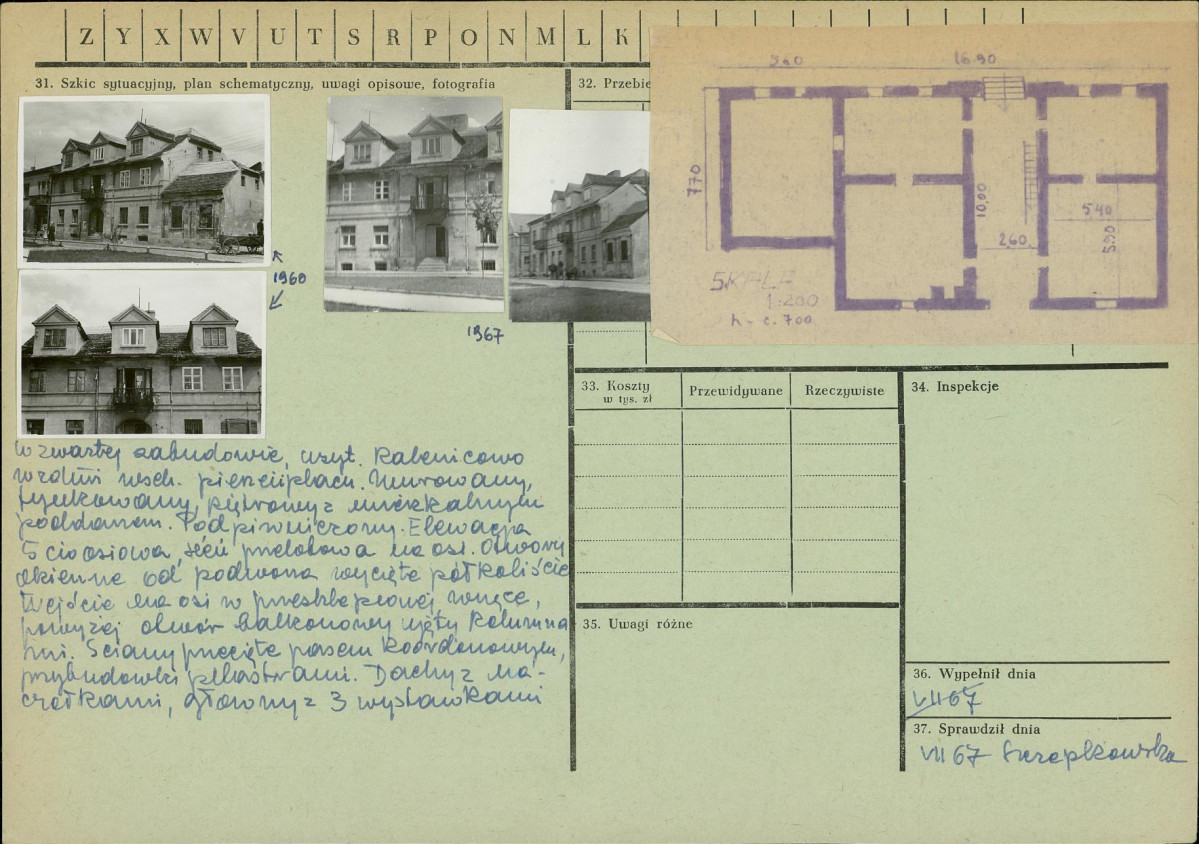 Z Y X W V U T S R P O N M L K
31. Szkic sytuacyjny, plan schematyczny, uwagi opisowe, fotografia
32. Przebie
1960
1967
560 16.90
770
10,00
540
590
260
SKALA
1:200
h - c. 700
W zwartej zabudowie, usyt. kalenicowo
wzdłuż wsch. pierzei placu. Murowany,
tynkowany, piętrowy z mieszkalnym
poddaszem. Podpiwniczony. Elewacja
5cioosiowa, sień przelotowa na osi. Otwory
okienne od podwórza wycięte półkoliście
Wejście na osi w przesklepionej wnęce,
powyżej otwór balkonowy ujęty kolumna
mi. Ściany przecięte pasem kordonowym,
przybudówki pilastrami. Dachy z na-
czółkami, główny z 3 wystawkami
33. Koszty
w tys. zł
Przewidywane
Rzeczywiste
34. Inspekcje
35. Uwagi różne
36. Wypełnił dnia
VII 67
37. Sprawdził dnia
VII 67